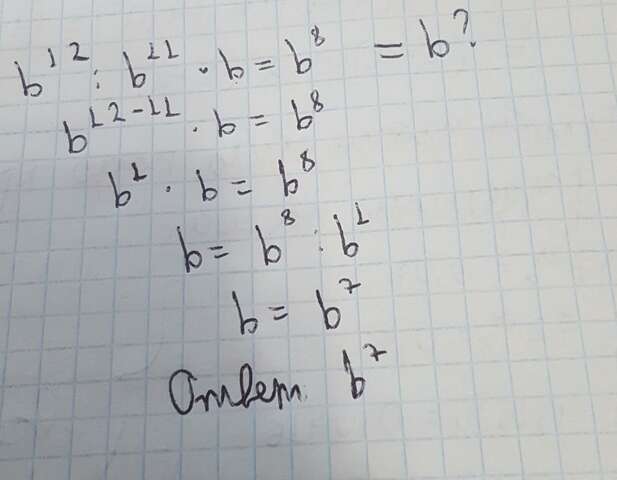 b¹² : b¹¹ · b = b⁸ = b?
b¹²⁻¹¹ · b = b⁸
b¹ · b = b⁸
b = b⁸ : b¹
b = b⁷
Ответ. b⁷